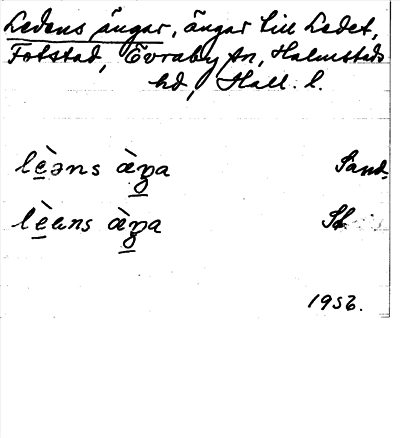 Ledens ängar, ängar till Ledet,
Fotstad, Övraby sn, Halmstads
hd, Hall. l.
lèəns àŋa Sand.
lèans àŋa St
1956.